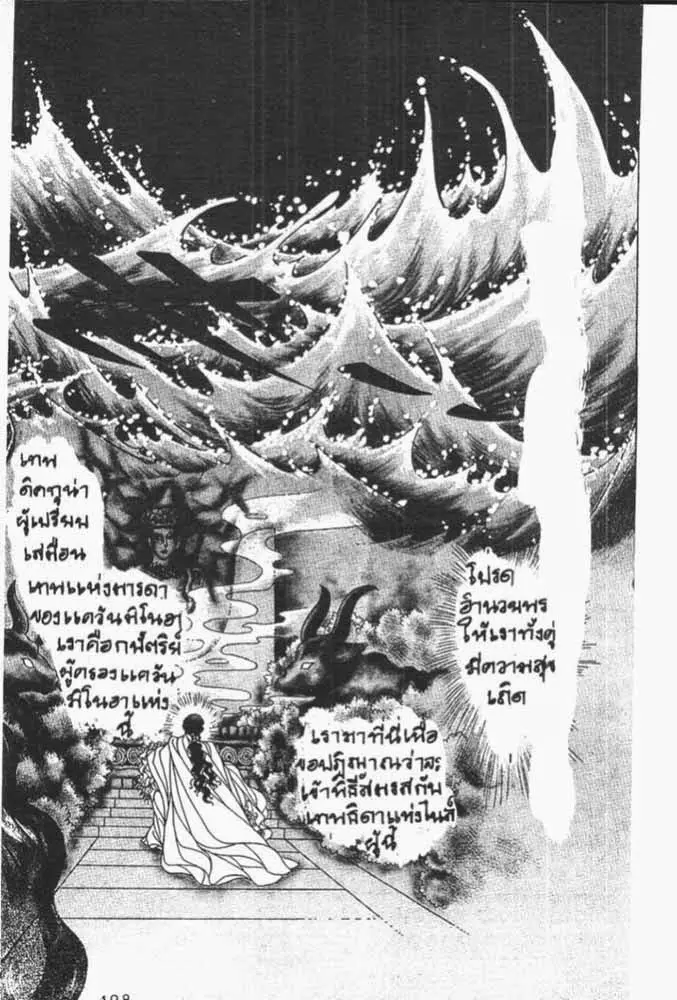 เทพ
ดิคทูน่า
ผู้เปรียบ
เสมือน
เทพแห่งมารดา
ของแคว้นมิโนอา
เราคือกษัตริย์
ผู้ครองแคว้น
มิโนอาแห่ง
นี้
เรามาที่นี่เพื่อ
ขอปฏิญาณว่าจะ
เข้าพิธีสมรสกับ
เทพธิดาแห่งไนล์
ผู้นี้
โปรด
อำนวยพร
ให้เราทั้งคู่
มีความสุข
เถิด